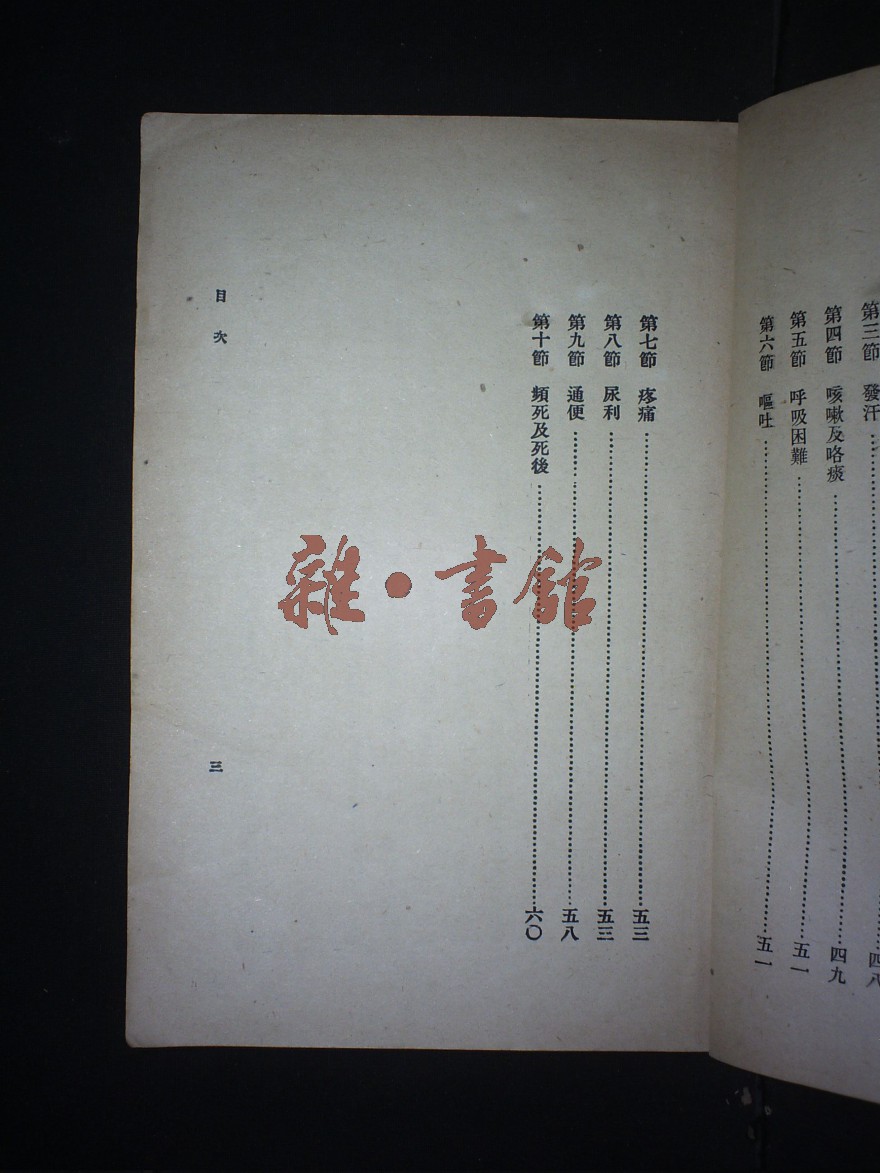 第三節　發汗……四八
第四節　咳嗽及咯痰……四九
第五節　呼吸困難……五一
第六節　嘔吐……五一
第七節　疼痛……五三
第八節　尿利……五三
第九節　通便……五八
第十節　頻死及死後……六〇
目次
三
雜·書館